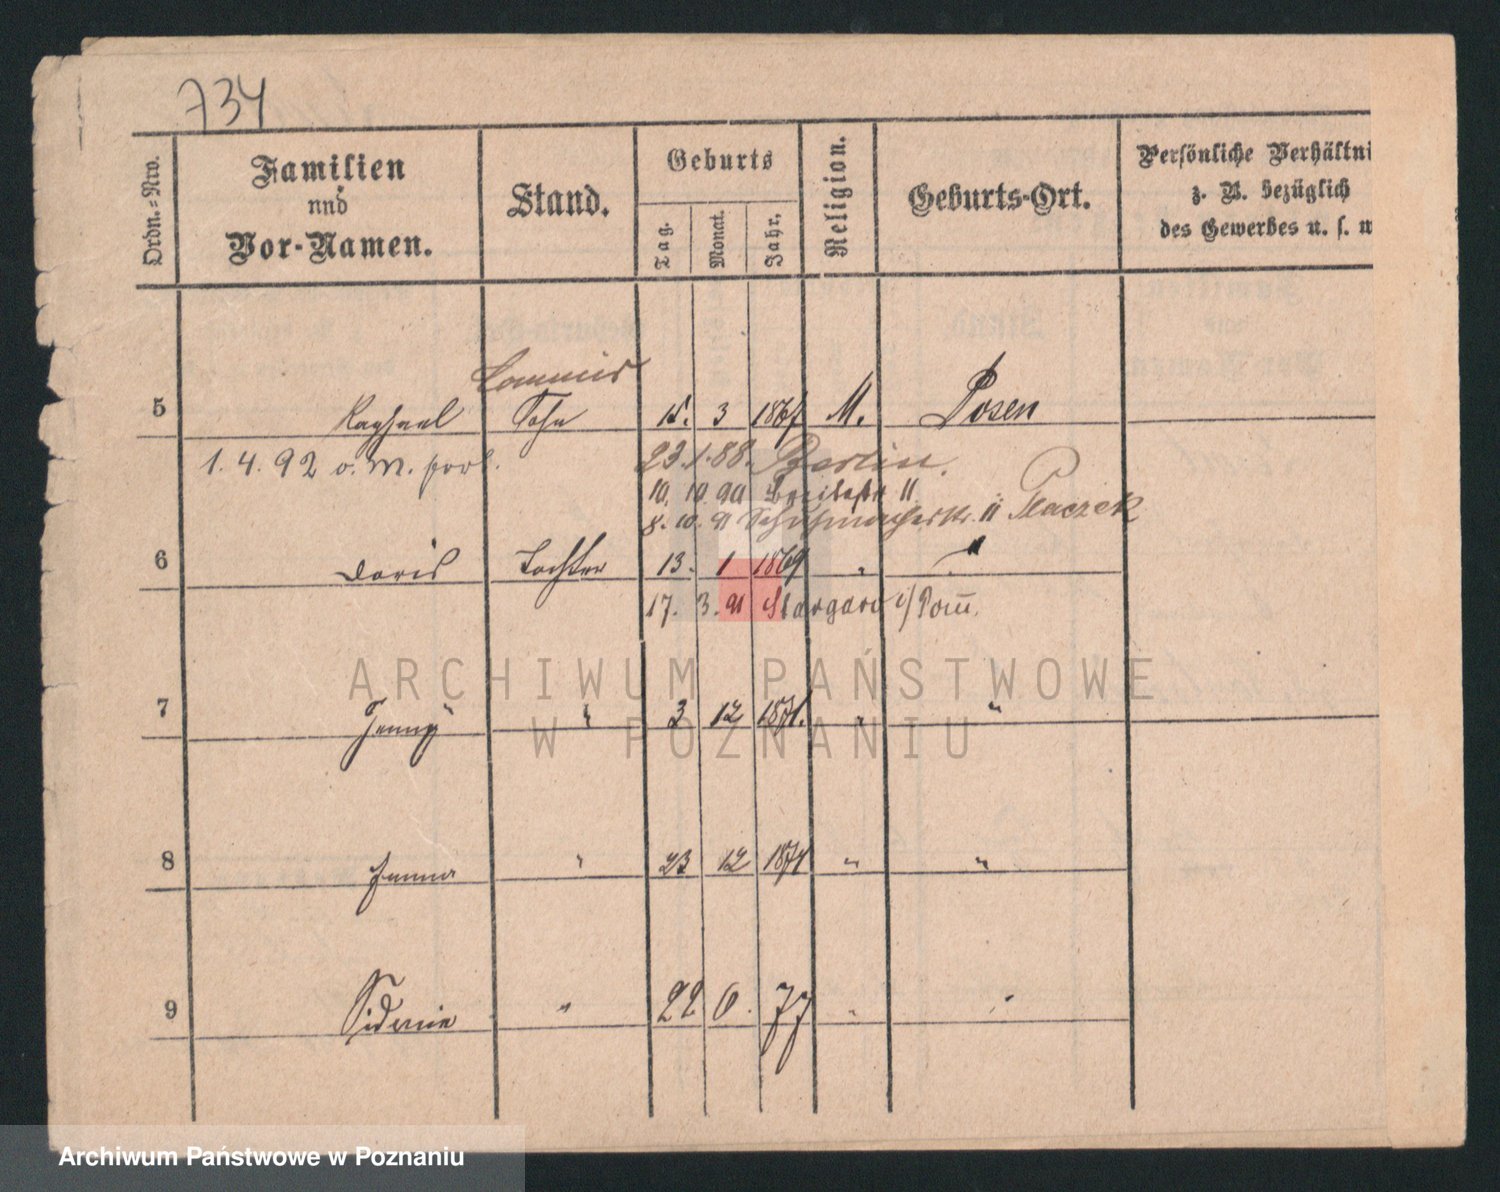 734
Ordn.=Nro.
Familien
und
Vor-Namen.
Stand.
Geburts
Tag.
Monat.
Jahr.
Religion.
Geburts-Ort.
Persönliche Verhältni
z. B. bezüglich
des Gewerbes u. s. w
Commis
5 Raphael Sohn 15. 3 1867 M. Posen
1. 4. 92 v. M.
23. 1. 88. Berlin.
10. 10. 90 Breitestr 11
8. 10. 91 Schuhmacherstr. 11 Placzek
6 Doris Tochter 13. 1 1869 " "
17. 3. 91 Stargard i/Pom.
7 Jenny " 3 12 1871. " "
8 Emma " 23 12 1874 " "
9 Sidonie " 22 6. 77 " "
ARCHIWUM PAŃSTWOWE
W POZNANIU
Archiwum Państwowe w Poznaniu